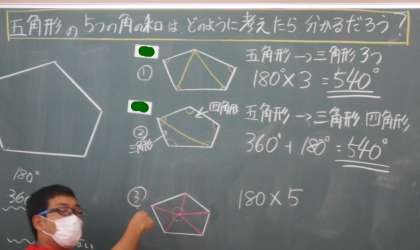 五角形の5つの角の和は どのように考えたら 分かるだろう?
①
五角形→三角形 3つ
180°×3=540°
②
四角形
三角形
五角形→三角形 四角形
360°+180°=540°
③
180×5
180°